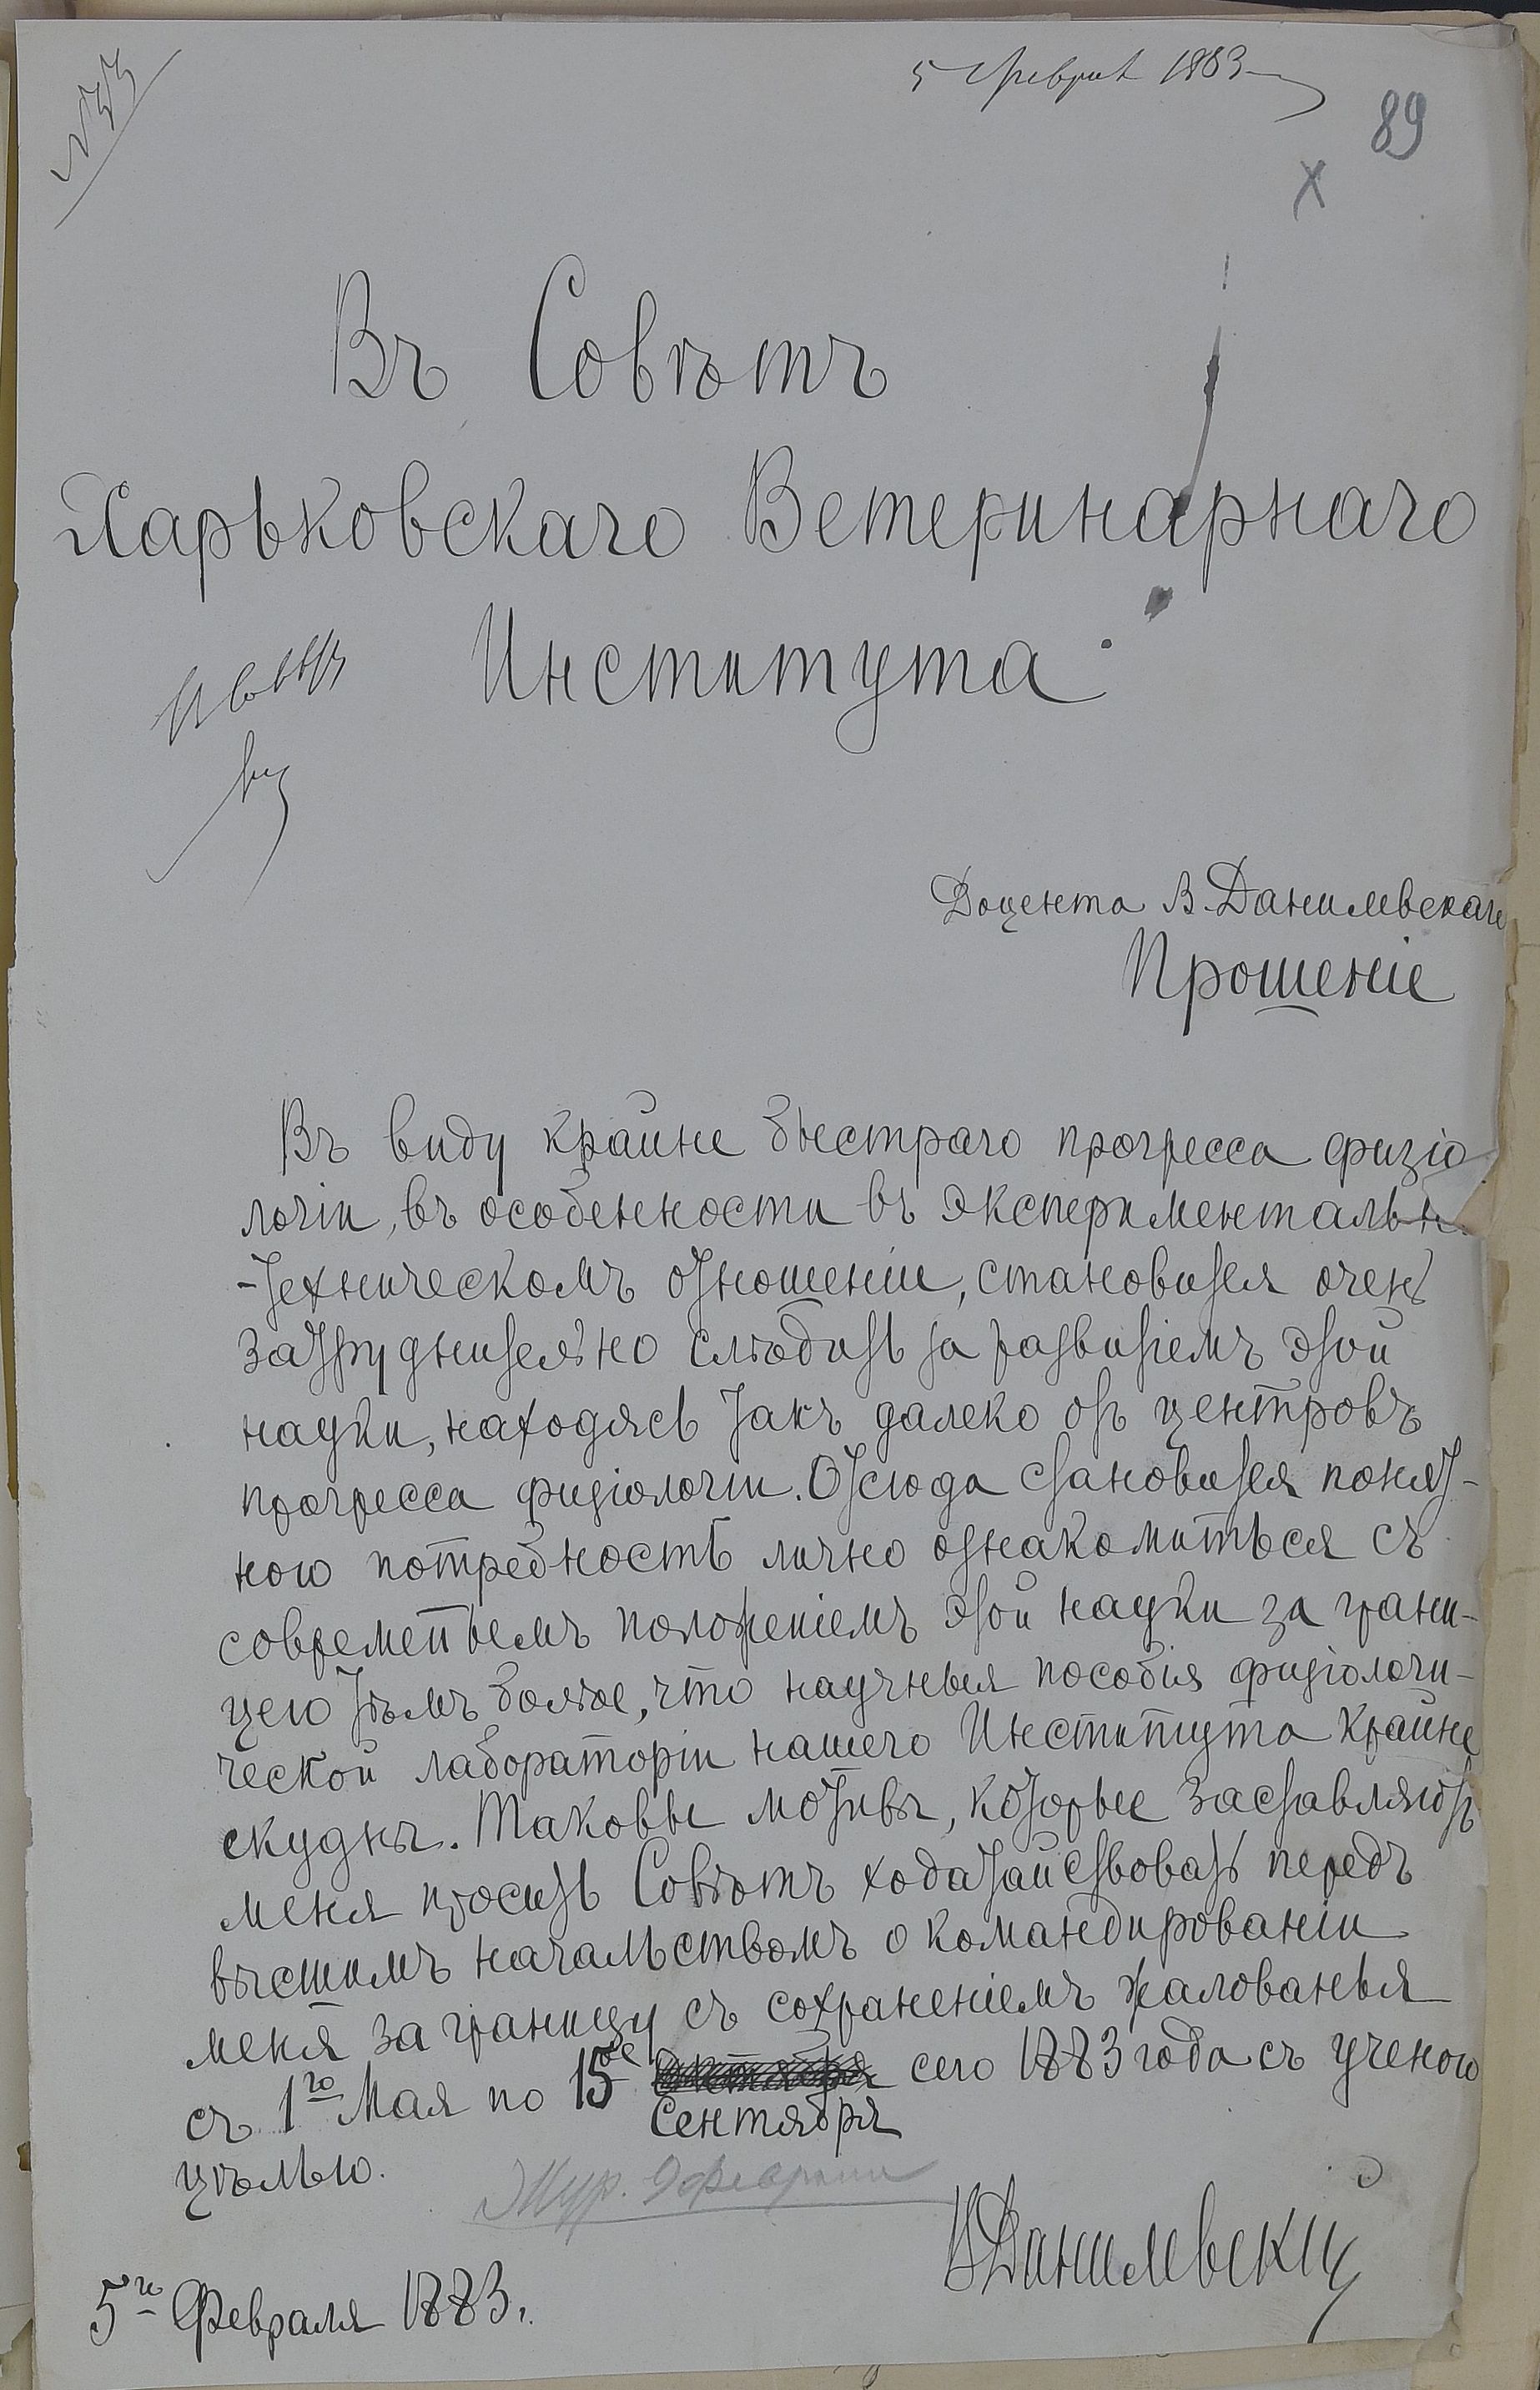 5 Феврал 1883
89
х
Въ Совѣтъ
Харьковскаго Ветеринарнаго
Института
Доцента В. Данилевскаго
Прошеніе
Въ виду крайне быстраго прогресса физіо
логіи, въ особенности въ экспериментальн.
-техническомъ отношеніи, становится очень
затруднительно слѣдить за развитіемъ этой
науки, находясь такъ далеко отъ центровъ
прогресса физіологіи. Отсюда становится понят-
ною потребность лично ознакомиться съ
современнымъ положеніемъ этой науки за грани-
цею тѣмъ болѣе, что научныя пособія физіологи-
ческой лабораторіи нашего Института крайне
скудны. Таковы мотивы, которые заставляютъ
меня просить Совѣтъ ходатайствовать передъ
высшимъ начальствомъ о командированіи
меня за границу съ сохраненіемъ жалованья
съ 1го Мая по 15ое сего 1883 года съ ученою
Сентября
цѣлью.
Жур. 9 февраля
В Данилевскій
5го Февраля 1883.